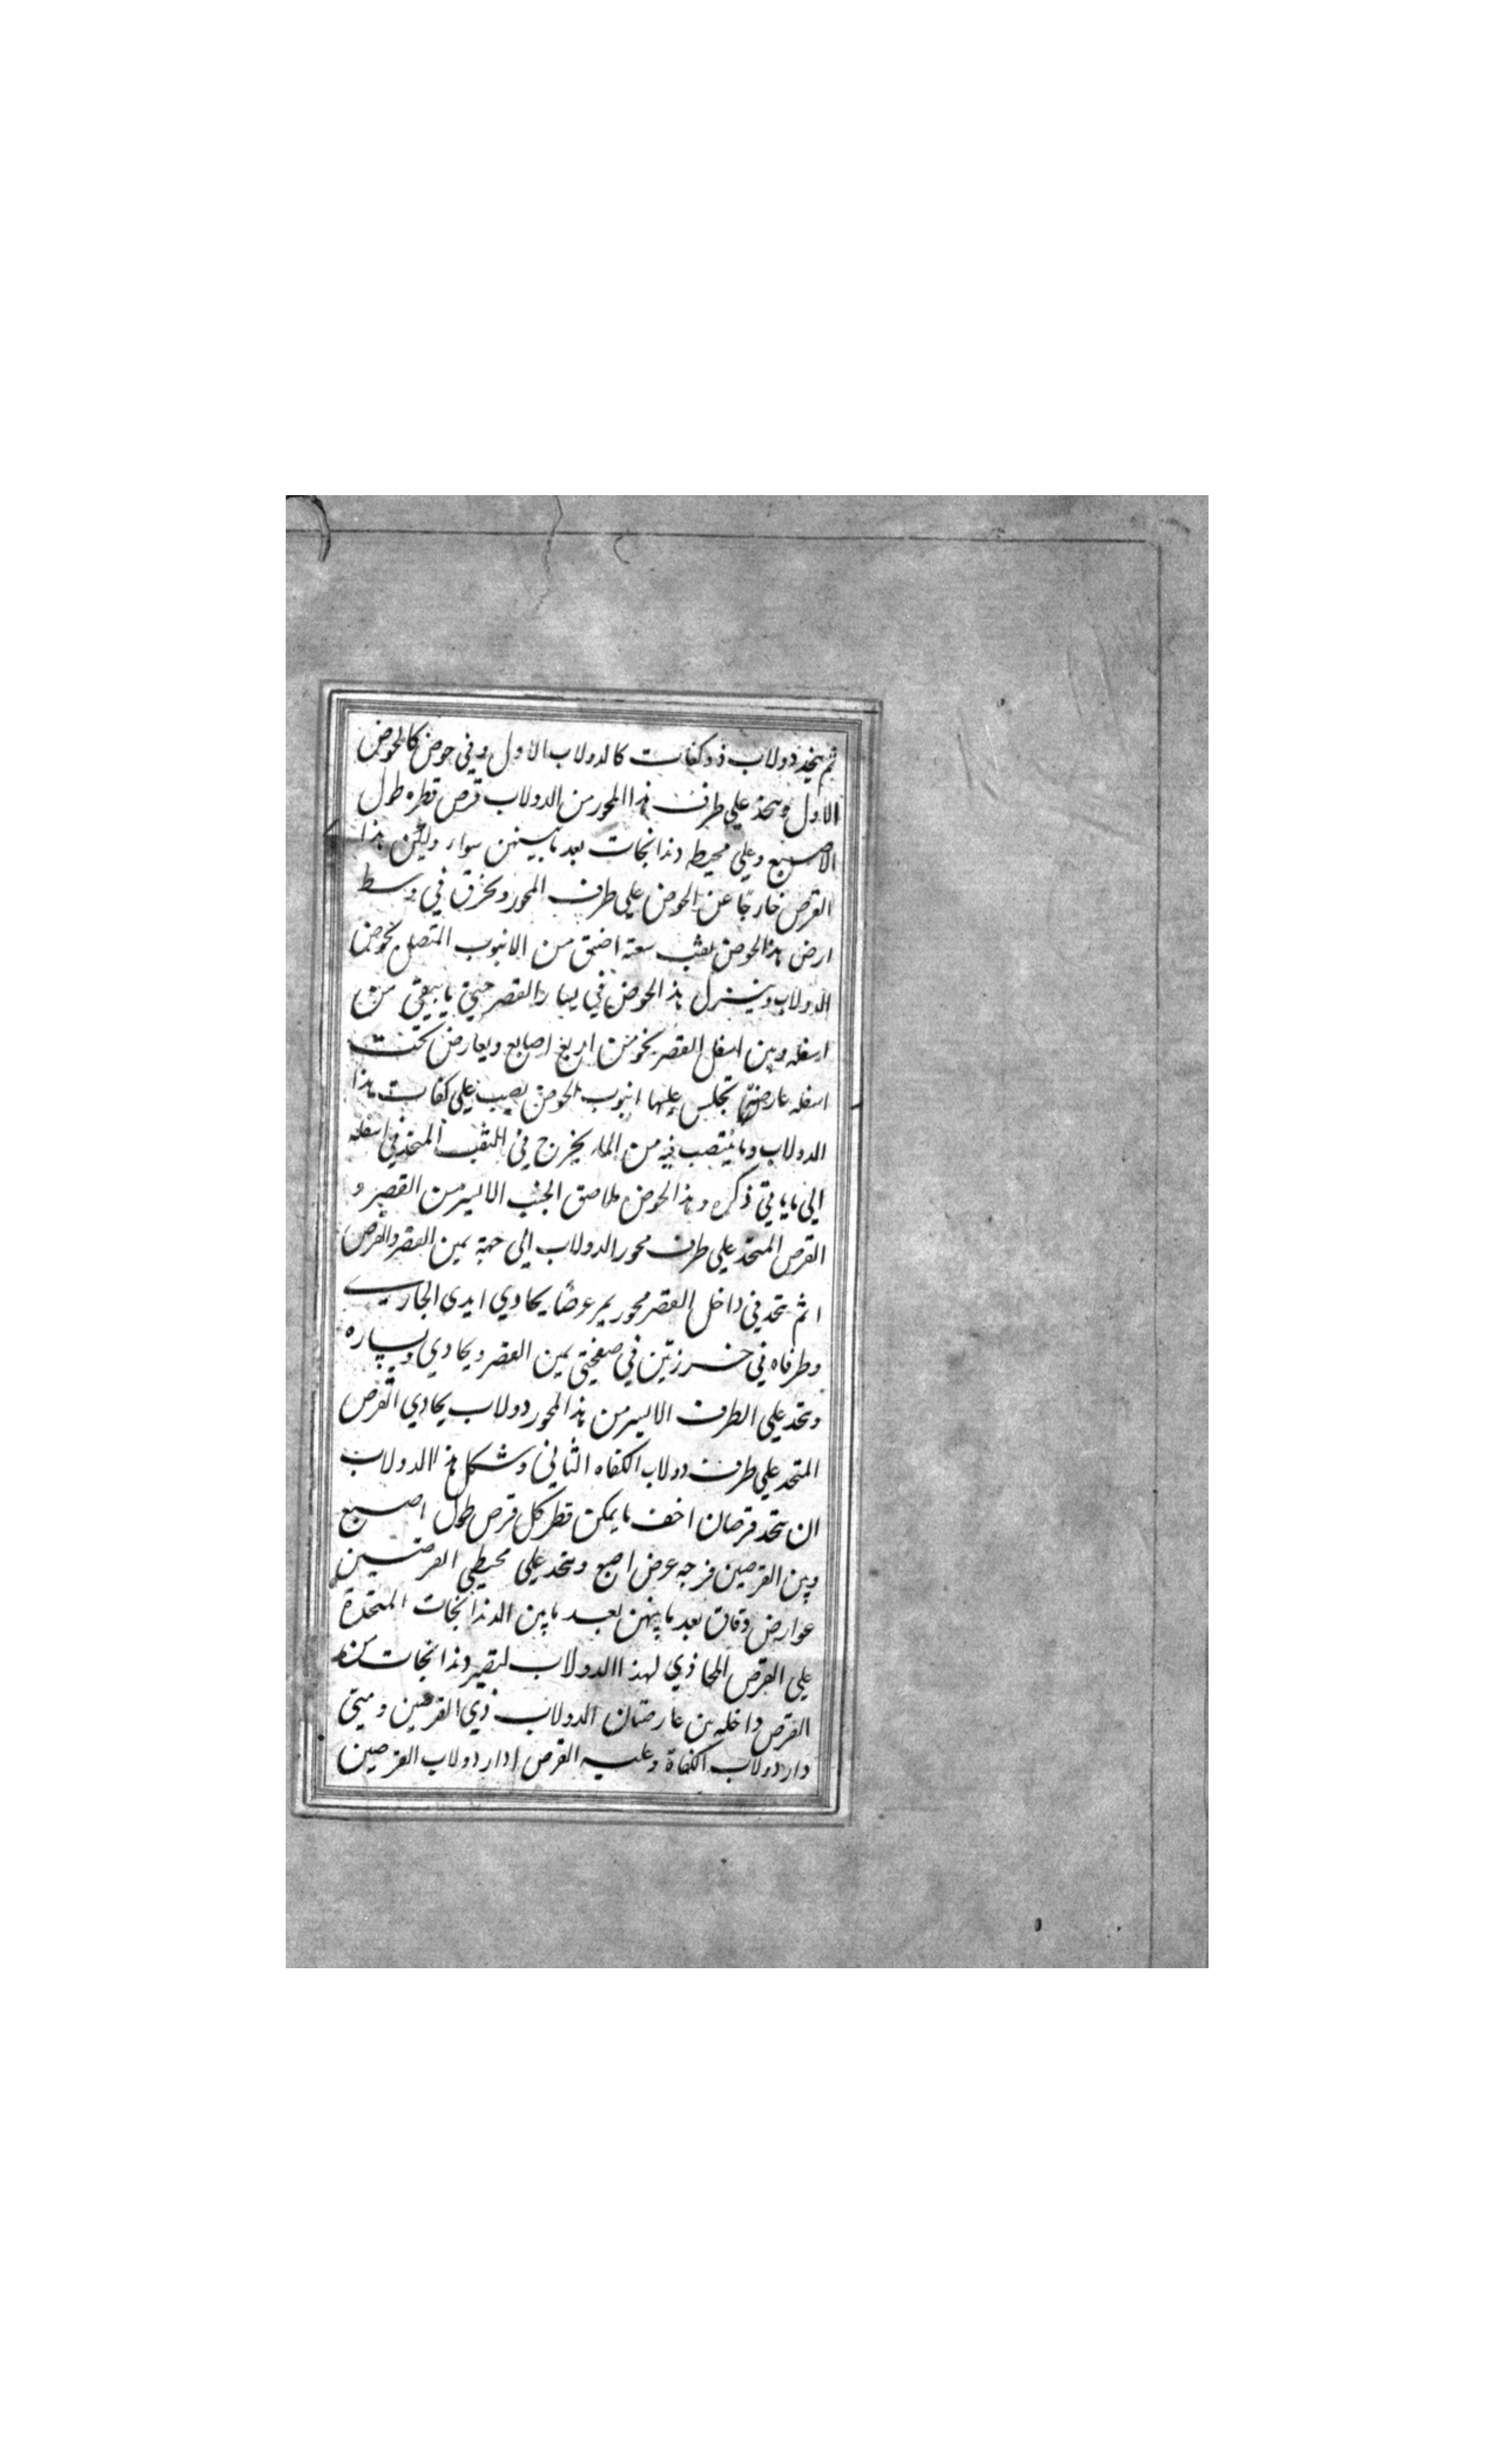 ثم يتخذ دولاب ذو كفات كالدولاب الاول وفي حوض كالحوض
الاول ويتخذ علي طرف هذا المحور من الدولاب قرص قطره طول
الاصبع وعلي محيطه دندانجات بعد ما بينهن سواء وليكن هذا
القرص خارجا عن الحوض علي طرف المحور ويخرق في وسط
ارض هذا الحوض ثقب سعته اضيق من الانبوب المتصل بحوض
الدولاب وينزل هذا الحوض في يسار القصر حتي يبقي من
اسفله وبين اسفل القصر نحو من اربع اصابع ويعارض تحت
اسفله عارضتي تجلس عليها انبوب الحوض يصب علي كفات هذا
الدولاب وما ينصب فيه من الماء يخرج في الثقب المتخذ في اسفله
الي ما ياتي ذكره وهذا الحوض ملاصق الجنب الايسر من القصر و
القرص المتخذ علي طرف محور الدولاب الي جهة يمين القصر والقرص
اثم يتخذ في داخل القصر محور يمر عرضا يحاذي ايدي الجاريـ
وطرفاه في خرزتين في صفحتي يمين القصر ويحادي ويساره
ويتخذ علي الطرف الايسر من هذا المحور دولاب يحادي القرص
المتخذ علي طرف دولاب الكفاه الثاني وشكل هذا الدولاب
ان يتخذ قرصان اخف ما يمكن قطر كل قرص طول اصبع
وبين القرصين فرجه عرض اصبع ويتخذ علي محيطي القرصين
عوارض دقاق بعد ما بينهن بعد ما بين الدندانجات المتخذة
علي القرص المحاذي لهذا الدولاب لتصير دندانجات من
القرص داخله بين عارضتان الدولاب ذي القرصين ومتي
دار دولاب الكفاة وعليه القرص ادار دولاب القرصين